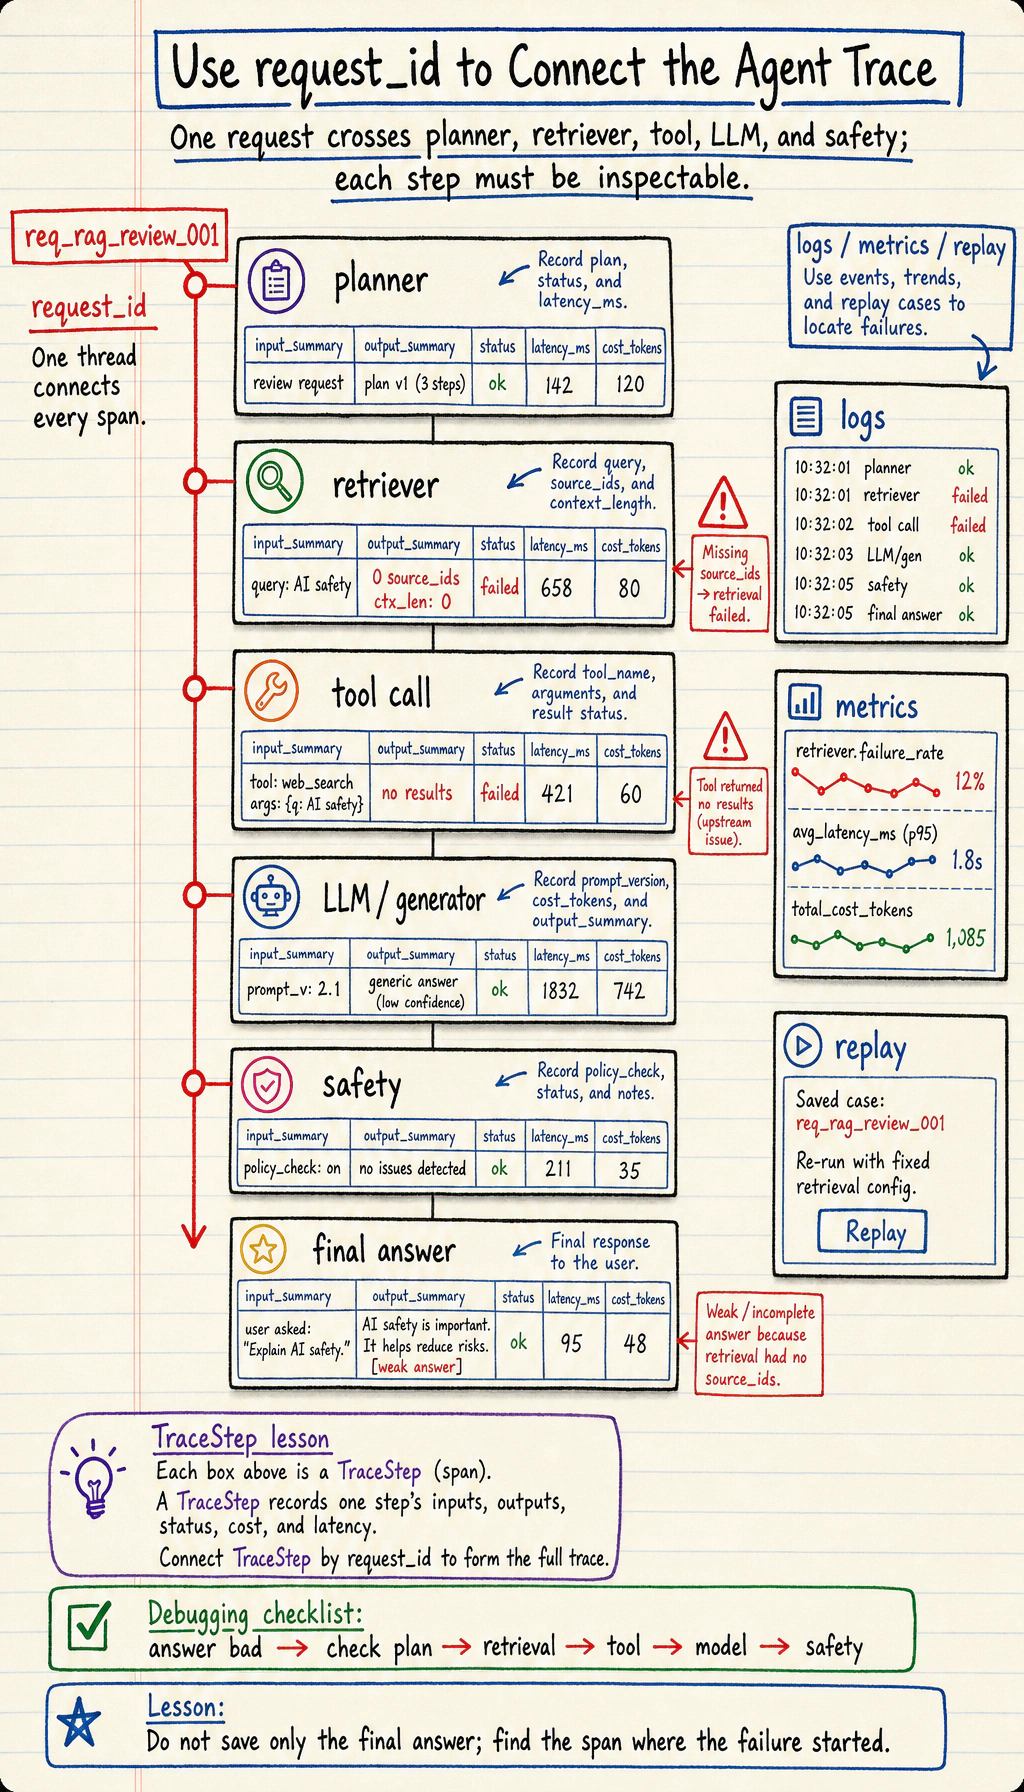 Use request_id to Connect the Agent Trace
One request crosses planner, retriever, tool, LLM, and safety;
each step must be inspectable.
req_rag_review_001
request_id
One thread
connects
every span.
planner
Record plan,
status, and
latency_ms.
input_summary output_summary status latency_ms cost_tokens
review request plan v1 (3 steps) ok 142 120
retriever
Record query,
source_ids, and
context_length.
input_summary output_summary status latency_ms cost_tokens
query: AI safety 0 source_ids failed 658 80
ctx_len: 0
Missing
source_ids
→ retrieval
failed.
tool call
Record tool_name,
arguments, and
result status.
input_summary output_summary status latency_ms cost_tokens
tool: web_search no results failed 421 60
args: {q: AI safety}
Tool returned
no results
(upstream
issue).
LLM / generator
Record prompt_version,
cost_tokens, and
output_summary.
input_summary output_summary status latency_ms cost_tokens
prompt_v: 2.1 generic answer ok 1832 742
(low confidence)
safety
Record policy_check,
status, and notes.
input_summary output_summary status latency_ms cost_tokens
policy_check: on no issues detected ok 211 35
final answer
Final response
to the user.
input_summary output_summary status latency_ms cost_tokens
user asked: AI safety is important. ok 95 48
"Explain AI safety." It helps reduce risks.
[weak answer]
Weak / incomplete
answer because
retrieval had no
source_ids.
logs / metrics / replay
Use events, trends,
and replay cases to
locate failures.
logs
10:32:01 planner ok
10:32:01 retriever failed
10:32:02 tool call failed
10:32:03 LLM/gen ok
10:32:05 safety ok
10:32:05 final answer ok
metrics
retriever.failure_rate
12%
avg_latency_ms (p95)
1.8s
total_cost_tokens
1,085
replay
Saved case:
req_rag_review_001
Re-run with fixed
retrieval config.
Replay
TraceStep lesson
Each box above is a TraceStep (span).
A TraceStep records one step's inputs, outputs,
status, cost, and latency.
Connect TraceStep by request_id to form the full trace.
Debugging checklist:
answer bad → check plan → retrieval → tool → model → safety
Lesson:
Do not save only the final answer; find the span where the failure started.